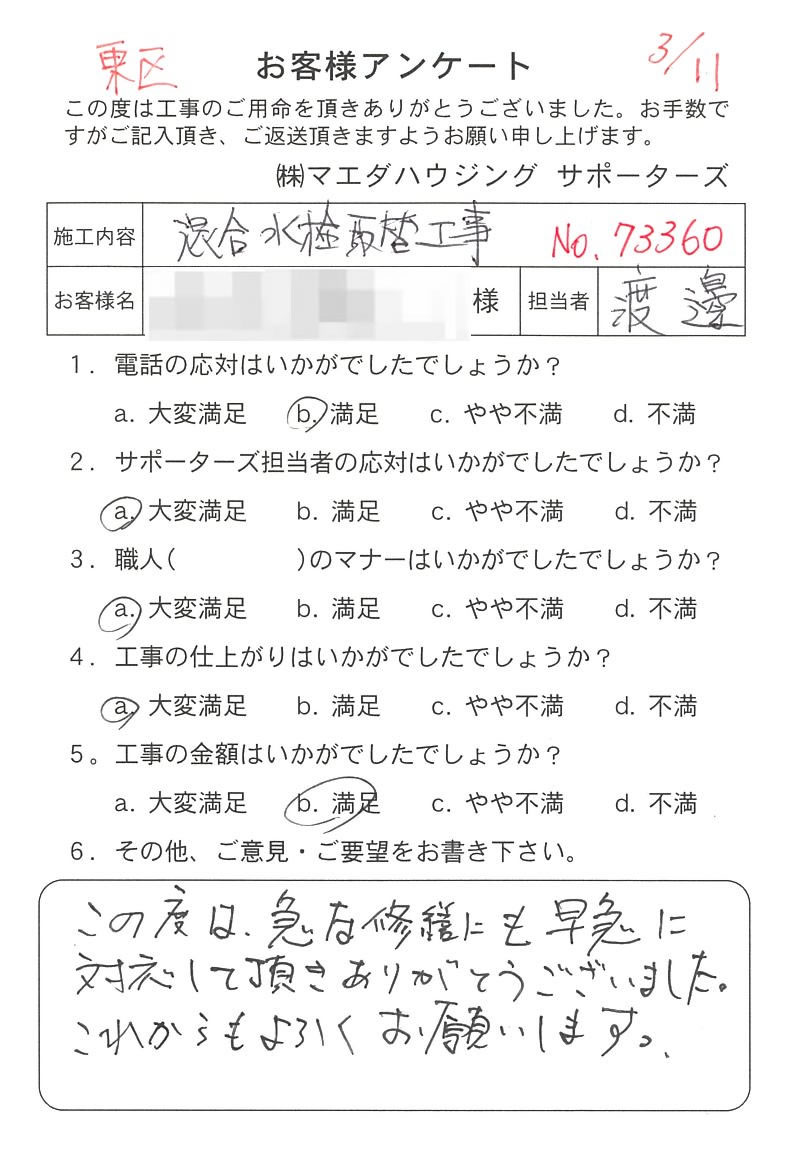 東区 お客様アンケート 3/11
この度は工事のご用命を頂きありがとうございました。お手数で
すがご記入頂き、ご返送頂きますようお願い申し上げます。
㈱マエダハウジング サポーターズ
施工内容 混合水栓取替工事 No.73360
お客様名 様 担当者 渡邊
1. 電話の応対はいかがでしたでしょうか?
a. 大変満足 b. 満足 c. やや不満 d. 不満
2. サポーターズ担当者の応対はいかがでしたでしょうか?
a. 大変満足 b. 満足 c. やや不満 d. 不満
3. 職人( )のマナーはいかがでしたでしょうか?
a. 大変満足 b. 満足 c. やや不満 d. 不満
4. 工事の仕上がりはいかがでしたでしょうか?
a. 大変満足 b. 満足 c. やや不満 d. 不満
5。工事の金額はいかがでしたでしょうか?
a. 大変満足 b. 満足 c. やや不満 d. 不満
6. その他、ご意見・ご要望をお書き下さい。
この度は、急な修繕にも早急に
対応して頂きありがとうございました。
これからもよろしくお願いします。